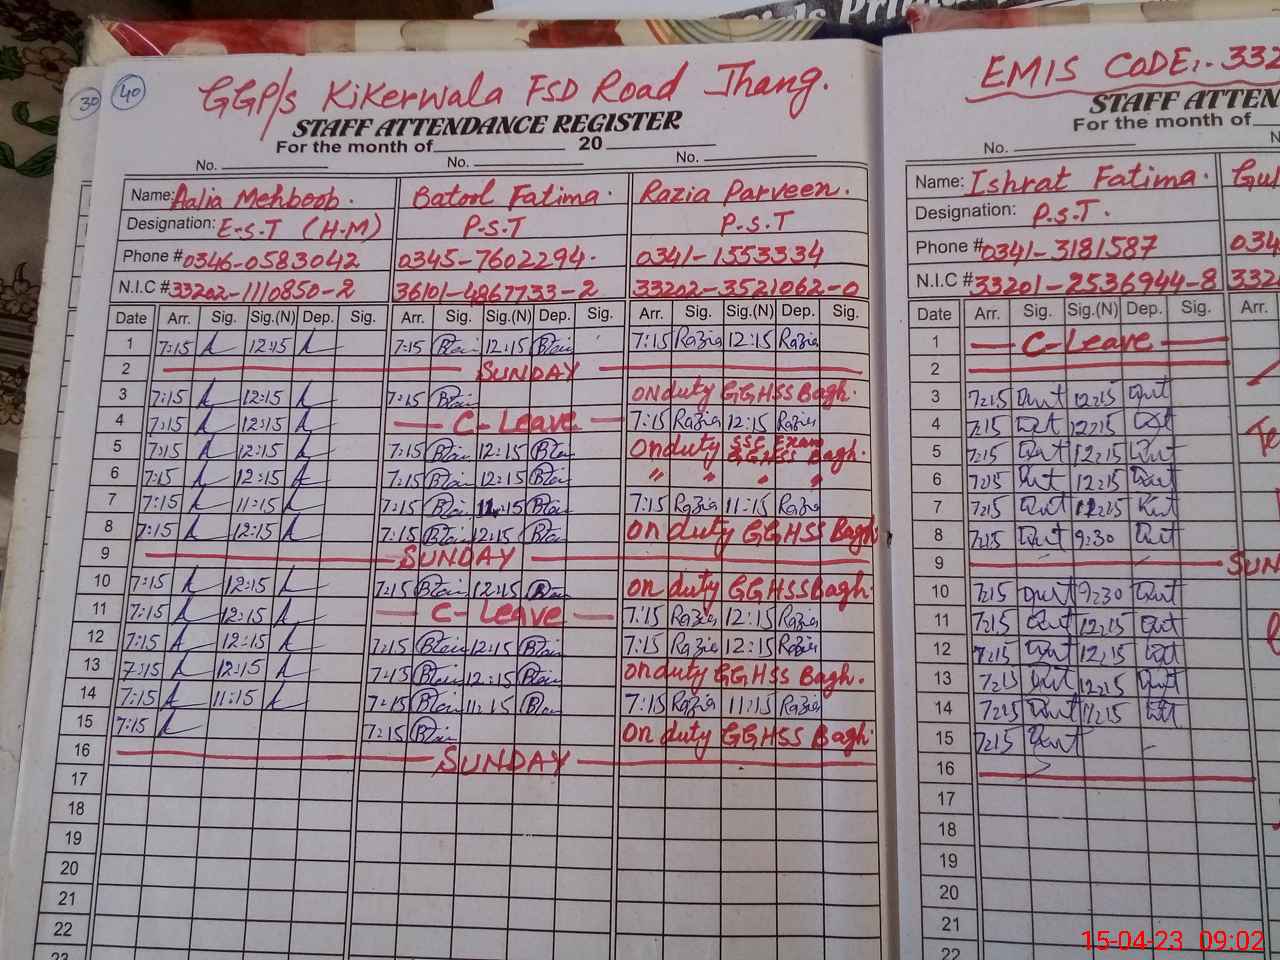 Girls Prim
30 40
GGP/s Kikerwala FSD Road Jhang.
STAFF ATTENDANCE REGISTER
For the month of 20
No. No. No.
Name: Aalia Mehboob. Batool Fatima. Razia Parveen.
Designation: E-S-T (H-M) P.S-T P.S.T
Phone # 0346-0583042 0345-7602294. 0341-1553334
N.I.C # 33202-1110850-2 36101-4867733-2 33202-3521062-0
Date Arr. Sig. Sig.(N) Dep. Sig. Arr. Sig. Sig.(N) Dep. Sig. Arr. Sig. Sig.(N) Dep. Sig.
1 7:15 12:15 7:15 12:15 7:15 Razia 12:15 Razia
2 SUNDAY
3 7:15 12:15 7:15 on duty GGHSS Bagh.
4 7:15 12:15 C-Leave 7:15 Razia 12:15 Razia
5 7:15 12:15 7:15 12:15 on duty SSC Exam GGHSS Bagh.
6 7:15 12:15 7:15 12:15 " " " "
7 7:15 11:15 7:15 11:15 7:15 Razia 11:15 Razia
8 7:15 12:15 7:15 12:15 on duty GGHSS Bagh
9 SUNDAY
10 7:15 12:15 7:15 12:15 on duty GGHSS Bagh.
11 7:15 12:15 C-Leave 7:15 Razia 12:15 Razia
12 7:15 12:15 7:15 12:15 7:15 Razia 12:15 Razia
13 7:15 12:15 7:15 12:15 on duty GGHSS Bagh.
14 7:15 11:15 7:15 11:15 7:15 Razia 11:15 Razia
15 7:15 7:15 on duty GGHSS Bagh
16 SUNDAY
17
18
19
20
21
22
23
EMIS CODE:. 332
STAFF ATTEN
For the month of
No. N
Name: Ishrat Fatima. Gul
Designation: P.S.T.
Phone # 0341-3181587 034
N.I.C # 33201-2536944-8 332
Date Arr. Sig. Sig.(N) Dep. Sig. Arr.
1 C-Leave
2
3 7:15 12:15
4 7:15 12:15
5 7:15 12:15
6 7:15 12:15
7 7:15 12:15
8 7:15 9:30
9 SUN
10 7:15 9:30
11 7:15 12:15
12 7:15 12:15
13 7:15 12:15
14 7:15
15 7:15
16
17
18
19
20
21
22
15-04-23 09:02